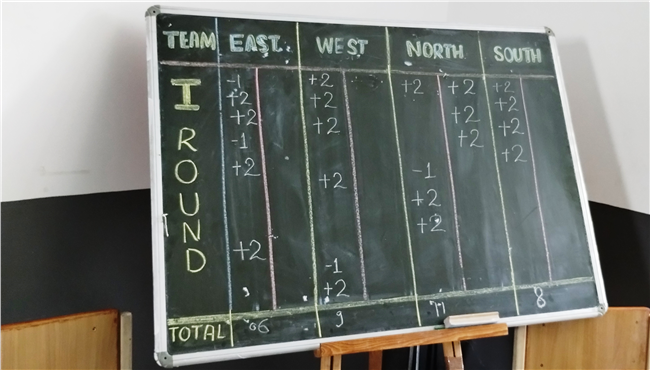 TEAM EAST. WEST NORTH SOUTH
I ROUND
-1 +2 +2 +2 +2
+2 +2 +2 +2
+2 +2 +2 +2
-1 +2
+2 +2 -1
+2
+2
+2
-1
+2
TOTAL 6 9 11 8